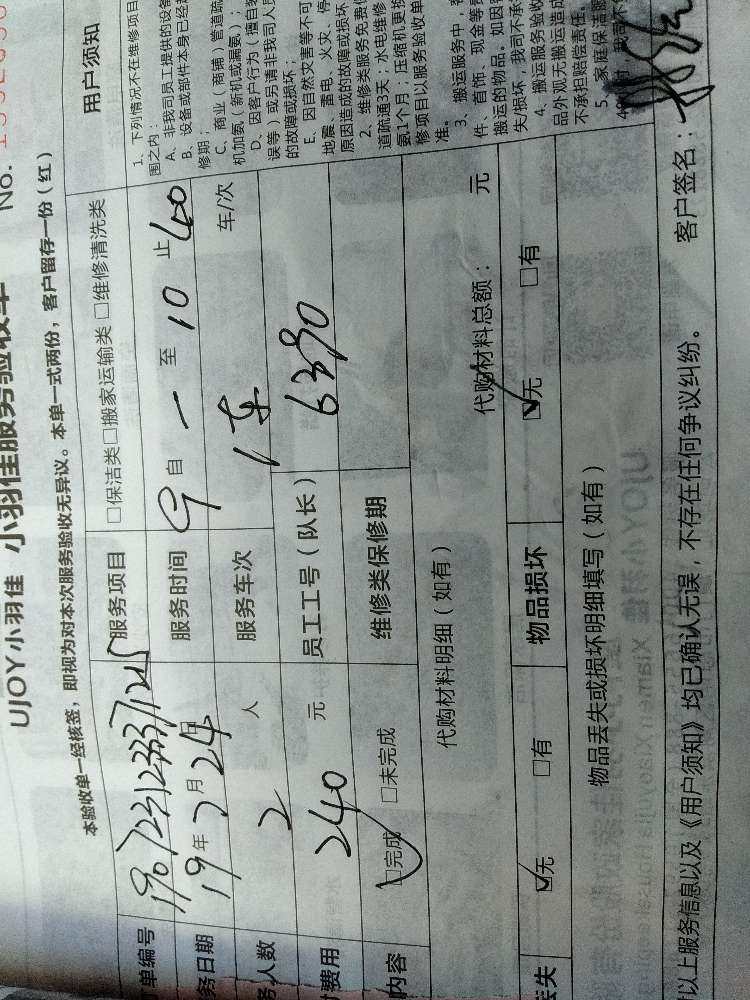 UJOY小羽佳 小羽佳服务验收单
No.
本验收单一经核签，即视为对本次服务验收无异议。本单一式两份，客户留存一份（红）
单编号
服务项目 □保洁类 □搬家运输类 □维修清洗类
务日期 19年7月24日
服务时间 9自一至10止40
人数 2人
服务车次 1车 车/次
费用 240元
员工工号（队长） 6390
内容 ☑完成 □未完成
维修类保修期
代购材料明细（如有）
代购材料总额： 元
丢失 ☑无 □有
物品损坏 ☑无 □有
物品丢失或损坏明细填写（如有）
以上服务信息以及《用户须知》均已确认无误，不存在任何争议纠纷。
客户签名：
用户须知
1、下列情况不在维修项目
围之内：
A、非我司员工提供的设备
B、设备或部件本身已经
修期；
C、商业（商铺）管道疏
机加氨（新机或漏氨）；
D、因客户行为（擅自
误等）或另请非我司人员
的故障或损坏；
E、因自然灾害等不可
地震、雷电、火灾、停
原因造成的故障或损坏
2、维修类服务免费
道疏通3天；水电维修
氨1个月；压缩机更换
修项目以服务验收单
准。
3、搬运服务中，客
件、首饰、现金等贵
搬运的物品。如因客
失/损坏，我司不承
4、搬运服务验收
品外观无搬运造成
不承担赔偿责任。
5、家庭保洁服